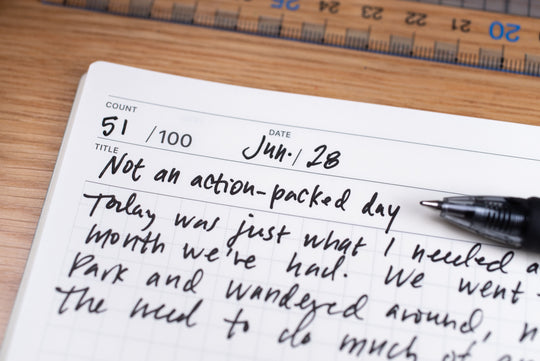 25 24 23 22 21 20
COUNT DATE
51 /100 Jun. / 28
TITLE
Not an action-packed day
Today was just what I needed
month we've had. We went
park and wandered around,
the need to do much of